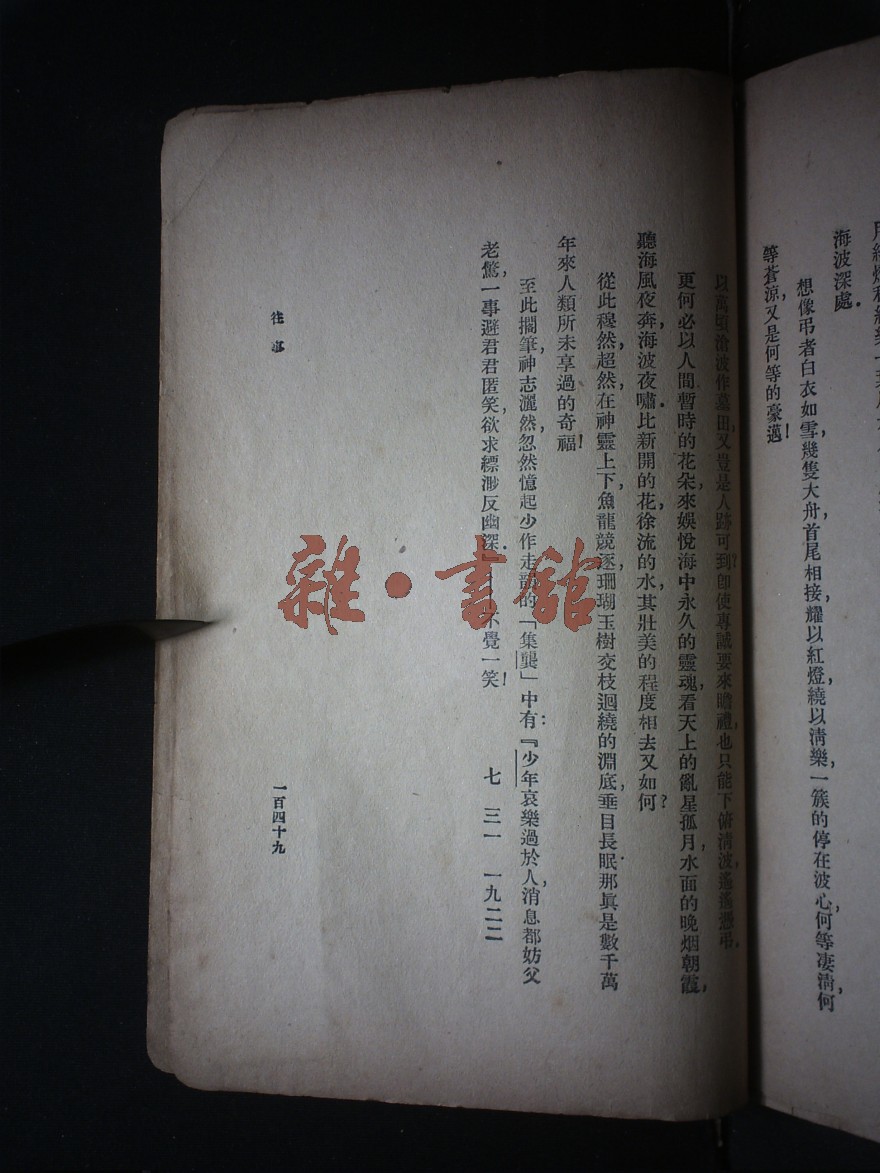 海波深處．
想像弔者白衣如雪，幾隻大舟，首尾相接，耀以紅燈，繞以清樂，一簇的停在波心，何等淒清，何
等蒼涼，又是何等的豪邁！
以萬頃滄波作墓田，又豈是人跡可到？即使專誠要來瞻禮，也只能下俯清波，遙遙憑弔．
更何必以人間暫時的花朵，來娛悅海中永久的靈魂，看天上的亂星孤月，水面的晚烟朝霞，
聽海風夜奔，海波夜嘯．比新開的花，徐流的水，其壯美的程度相去又如何？
從此穆然，超然，在神靈上下，魚龍競逐，珊瑚玉樹交枝迴繞的淵底，垂目長眠．那眞是數千萬
年來人類所未享過的奇福！
至此擱筆，神志灑然，忽然憶起少作走韻的「集龔」中有：『少年哀樂過於人，消息都妨父
老驚，一事避君君匿笑，欲求縹渺反幽深．』不覺一笑！
七 三一 一九二二
往事
一百四十九
雜·書館